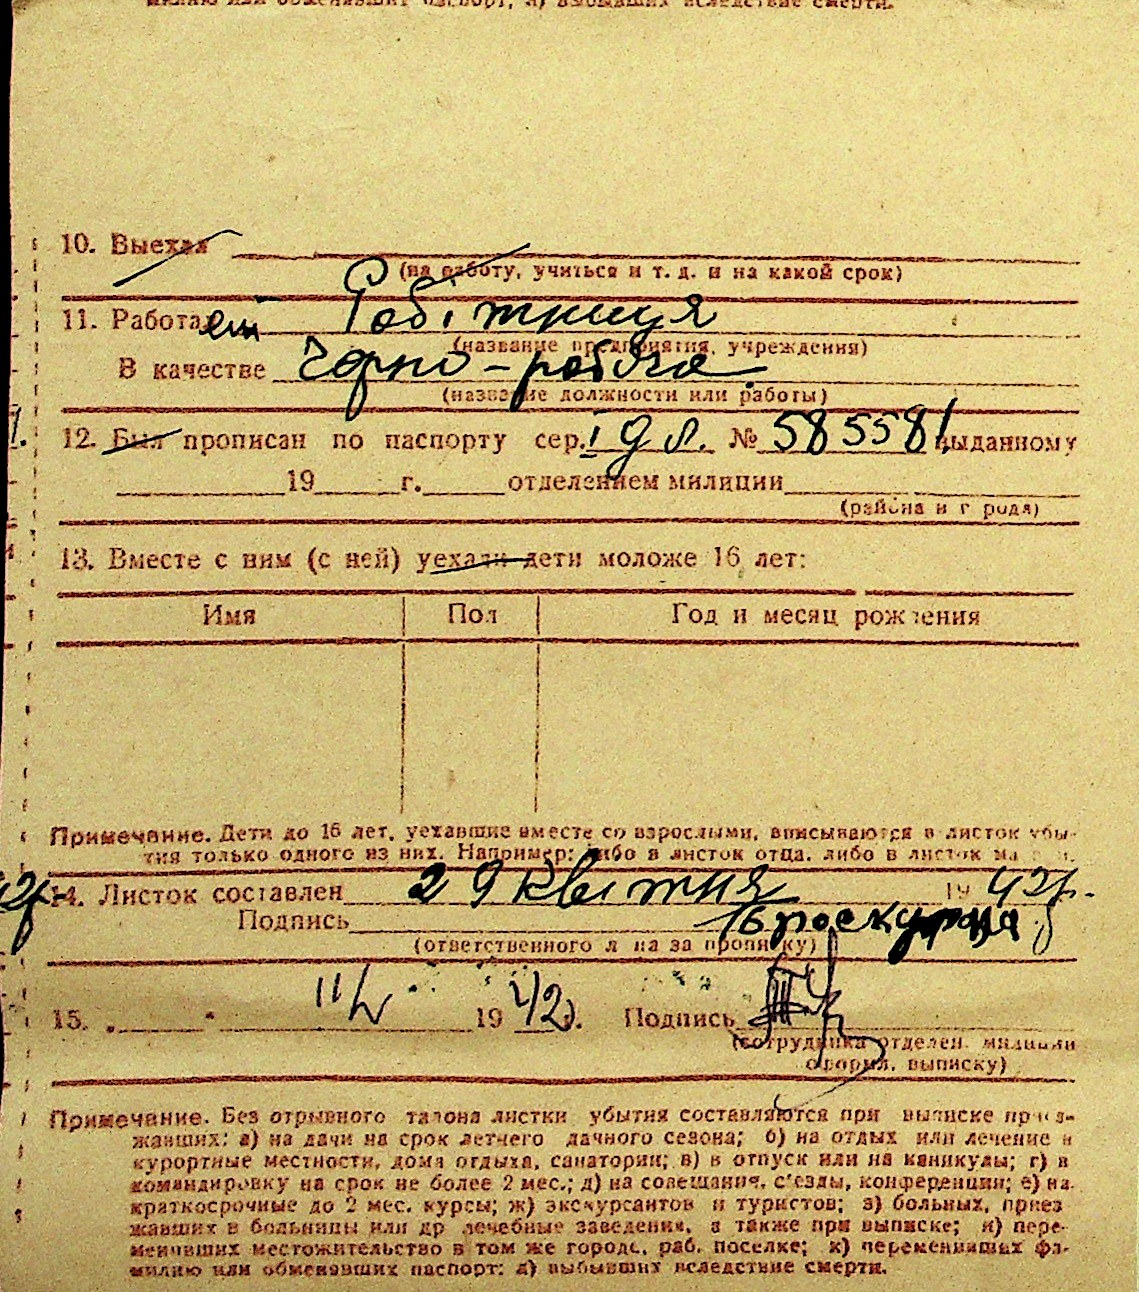 милию или обменявших паспорт; л) выбывших вследствие смерти.
10. Выехал
(на работу, учиться и т. д. и на какой срок)
11. Работает Робітниця
(название предприятия, учреждения)
В качестве Чорно-робоча
(название должности или работы)
12. Был прописан по паспорту сер. № 585581 выданному
19 г. отделением милиции
(района и города)
13. Вместе с ним (с ней) уехали дети моложе 16 лет:
Имя Пол Год и месяц рождения
Примечание. Дети до 16 лет, уехавшие вместе со взрослыми, вписываются в листок убы-
тия только одного из них. Например: либо в листок отца, либо в листок
14. Листок составлен 29 квітня 1942р.
Подпись Проскурца
(ответственного лица за прописку)
15. „ " 19 42 г. Подпись
(сотрудника отделен. милиции
оформл. выписку)
Примечание. Без отрывного талона листки убытия составляются при выписке приез-
жавших: а) на дачи на срок летнего дачного сезона; б) на отдых или лечение в
курортные местности, дома отдыха, санатории; в) в отпуск или на каникулы; г) в
командировку на срок не более 2 мес.; д) на совещания, с'езды, конференции; е) на
краткосрочные до 2 мес. курсы; ж) экскурсантов и туристов; з) больных, приез
жавших в больницы или др лечебные заведения, а также при выписке; и) пере-
менивших местожительство в том же городе, раб. поселке; к) переменивших фа-
милию или обменявших паспорт; л) выбывших вследствие смерти.